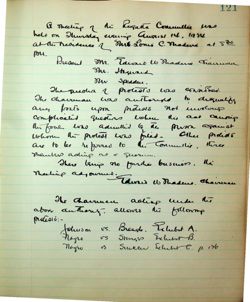 121
A meeting of the Regatta Committee was
held on Thursday evening August 14, 1924
at the residence of Mr. Louis C. Madeira at 5
P.M.
Present Mr. Edward W. Madeira Chairman
Mr.
Mr.
The question of protests was considered.
The Chairman was authorized to disqualify
any boats upon protest not involving
complicated questions when the act causing
the foul was admitted by the person against
whom the protest was filed. Other protests
are to be referred to the Committee, three
members acting as a quorum.
There being no further business, the
meeting adjourned.
Edward W. Madeira, Chairman
The Chairman acting under the
above authority allowed the following
protests:-
Johnson vs. Exhibit A.
vs. Exhibit B.
vs. Exhibit C. p 126